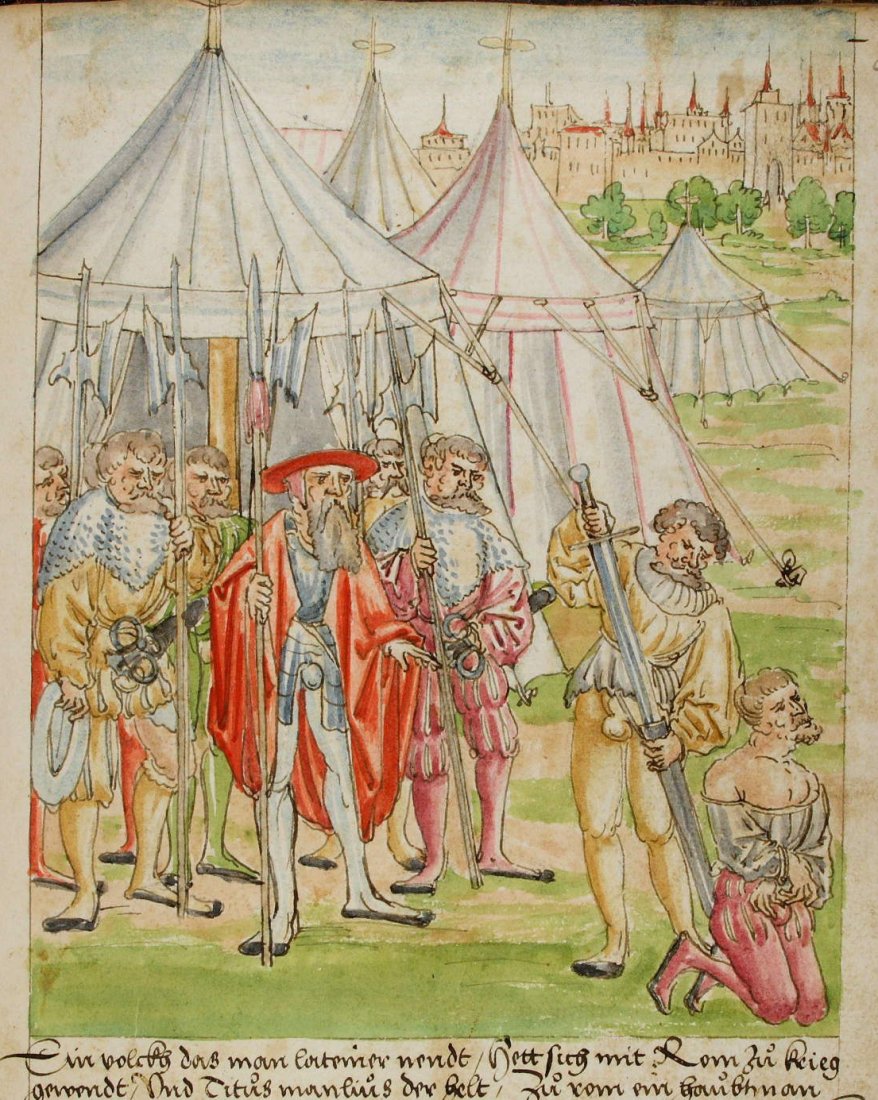 Ein volckh das man lateiner nendt / Hett sich mit Rom zů krieg
gewendt / Vnd Titůs manliůs der helt / Zů rom ein haůbtman